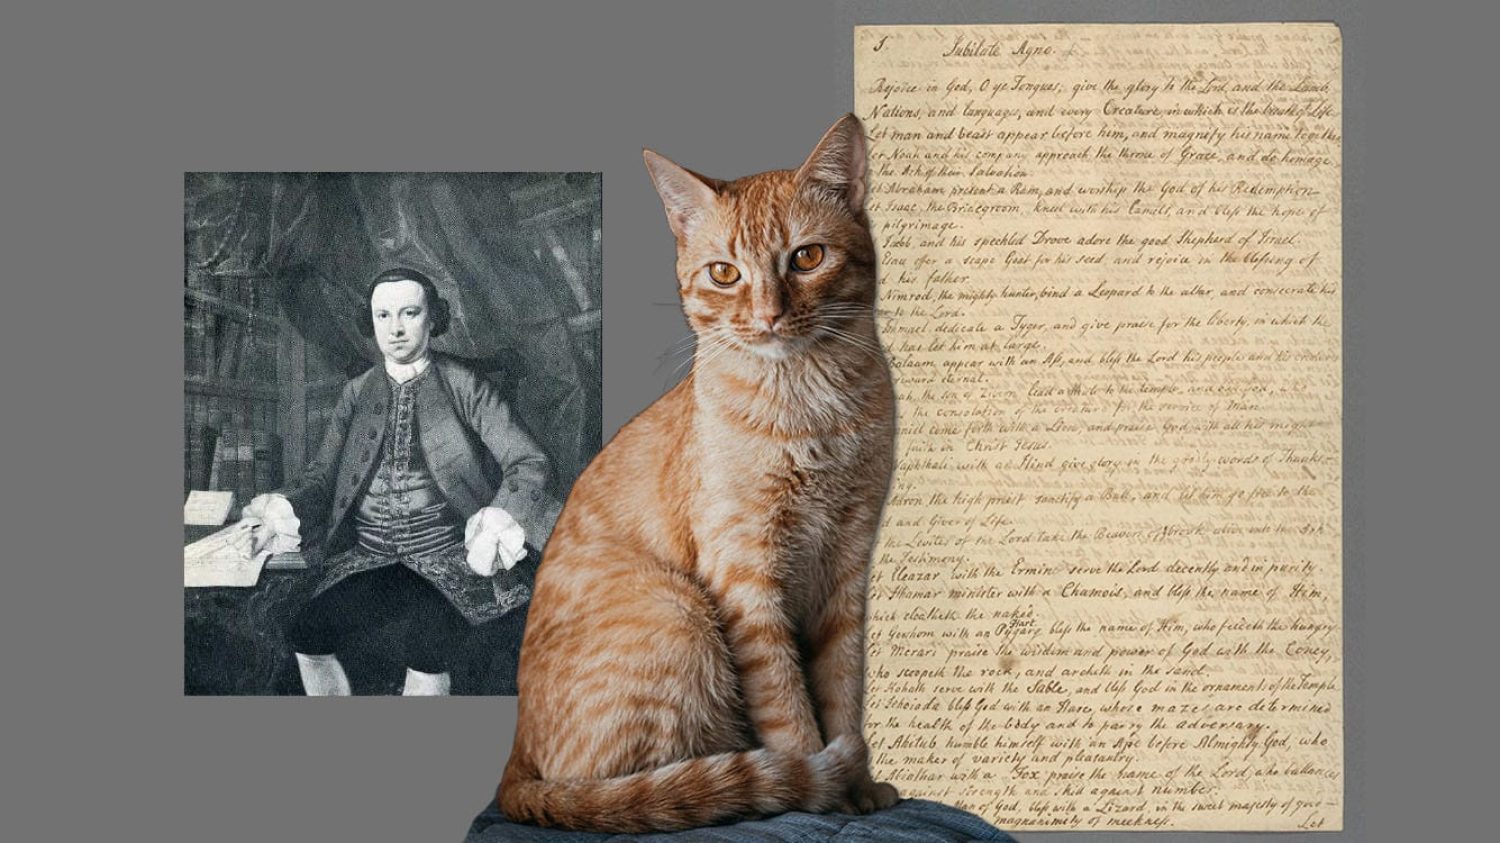 I. Jubilate Agno.
Rejoice in God, O ye Tongues; give the glory to the Lord, and the Lamb.
Nations, and languages, and every Creature, in which is the breath of Life.
Let man and beast appear before him, and magnify his name together
Noah and his company approach the throne of Grace, and do homage
the Ark of their Salvation.
Abraham present a Ram, and worship the God of his Redemption
Isaac, the Bridegroom, kneel with his Camels, and bless the hope of
pilgrimage.
and his speckled Drove adore the good Shepherd of Israel.
Esau offer a scape Goat for his seed, and rejoice in the blessing of
his father.
Nimrod, the mighty hunter, bind a Leopard to the altar, and consecrate his
to the Lord.
dedicate a Tyger, and give praise for the liberty, in which the
has let him at large.
Balaam appear with an Ass, and bless the Lord his people and his
eternal.
the son of lead a Mule to the temple, and
the consolation of the creature for the service of Man.
come forth with a Lion, and praise God with all his might
faith in Christ Jesus.
with a Hind give glory in the goodly words of Thanks-
the high priest sanctify a Bull, and let him go free to the
and Giver of Life.
the Levites of the Lord take the Beavers of brook alive into the Ark
the Testimony.
Eleazar with the Ermine serve the Lord decently and in purity.
Ithamar minister with a Chamois, and bless the name of Him,
which cloatheth the naked.
Gershom with an Pygarg Hart bless the name of Him, who feedeth the hungry
Merari praise the wisdom and power of God with the Coney,
who scoopeth the rock, and archeth in the sand.
Kohath serve with the Sable, and bless God in the ornaments of the Temple
Jehoiada bless God with an Hare, whose mazes are determined
for the health of the body and to parry the adversary.
Let Ahitub humble himself with an Ape before Almighty God, who
the maker of variety and pleasantry.
Abiathar with a Fox praise the name of the Lord, who ballances
against strength and skill against number.
Man of God, bless with a Lizard, in the sweet majesty of good-
magnanimity of meekness.
Let